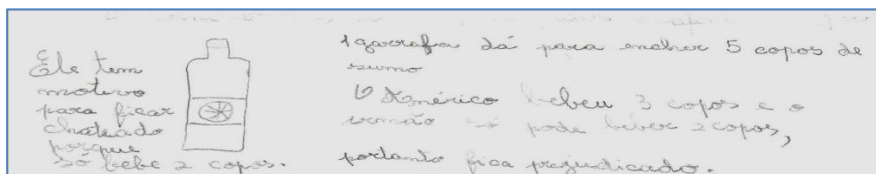 Ele tem
motivo
para ficar
chateado
porque
só bebe 2 copos.
1 garrafa dá para encher 5 copos de
sumo
O Américo bebeu 3 copos e o
irmão só pode beber 2 copos,
portanto fica prejudicado.